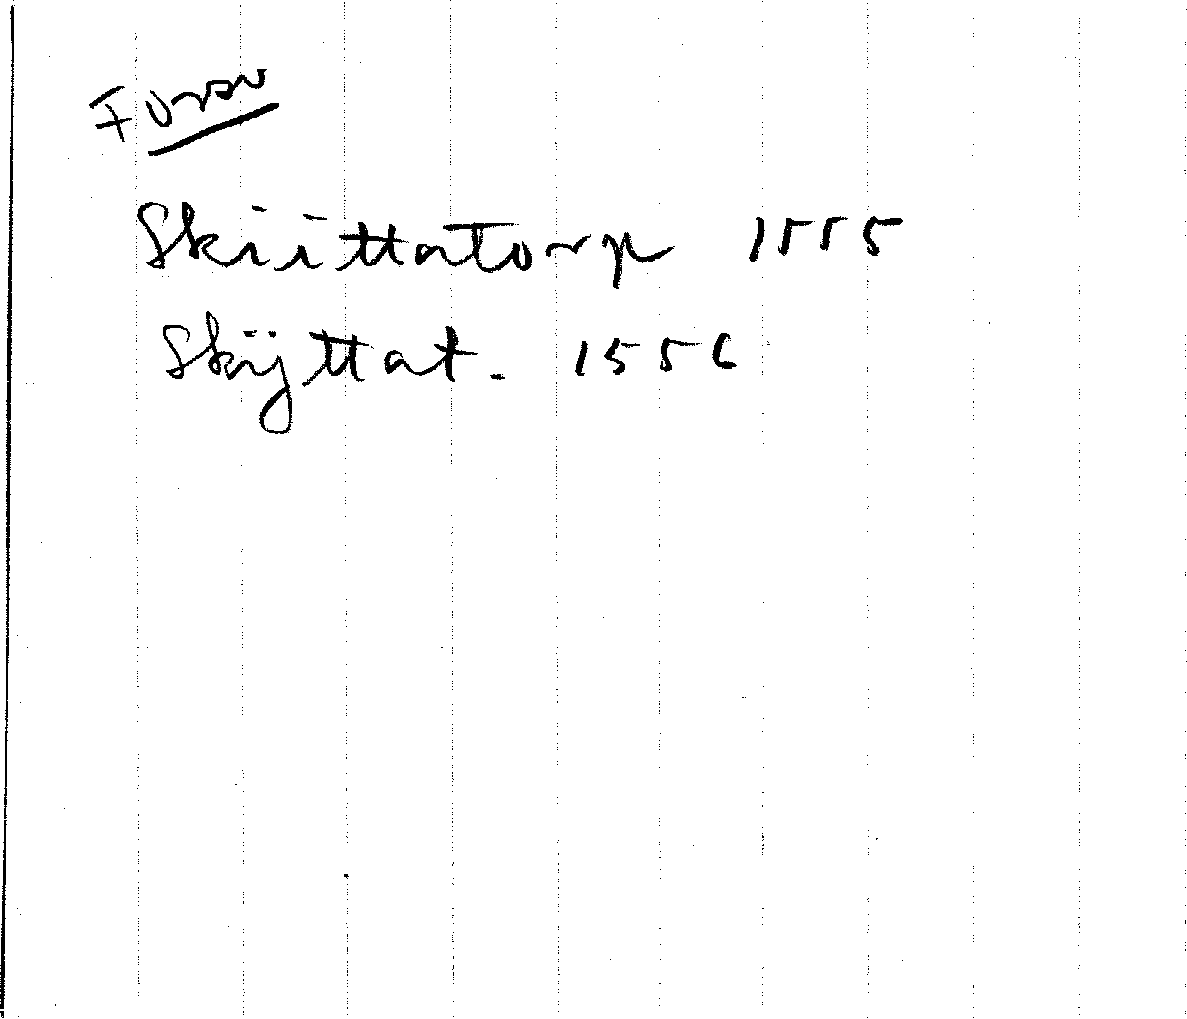 Skiittatorp 1555
Skijttat. 1556